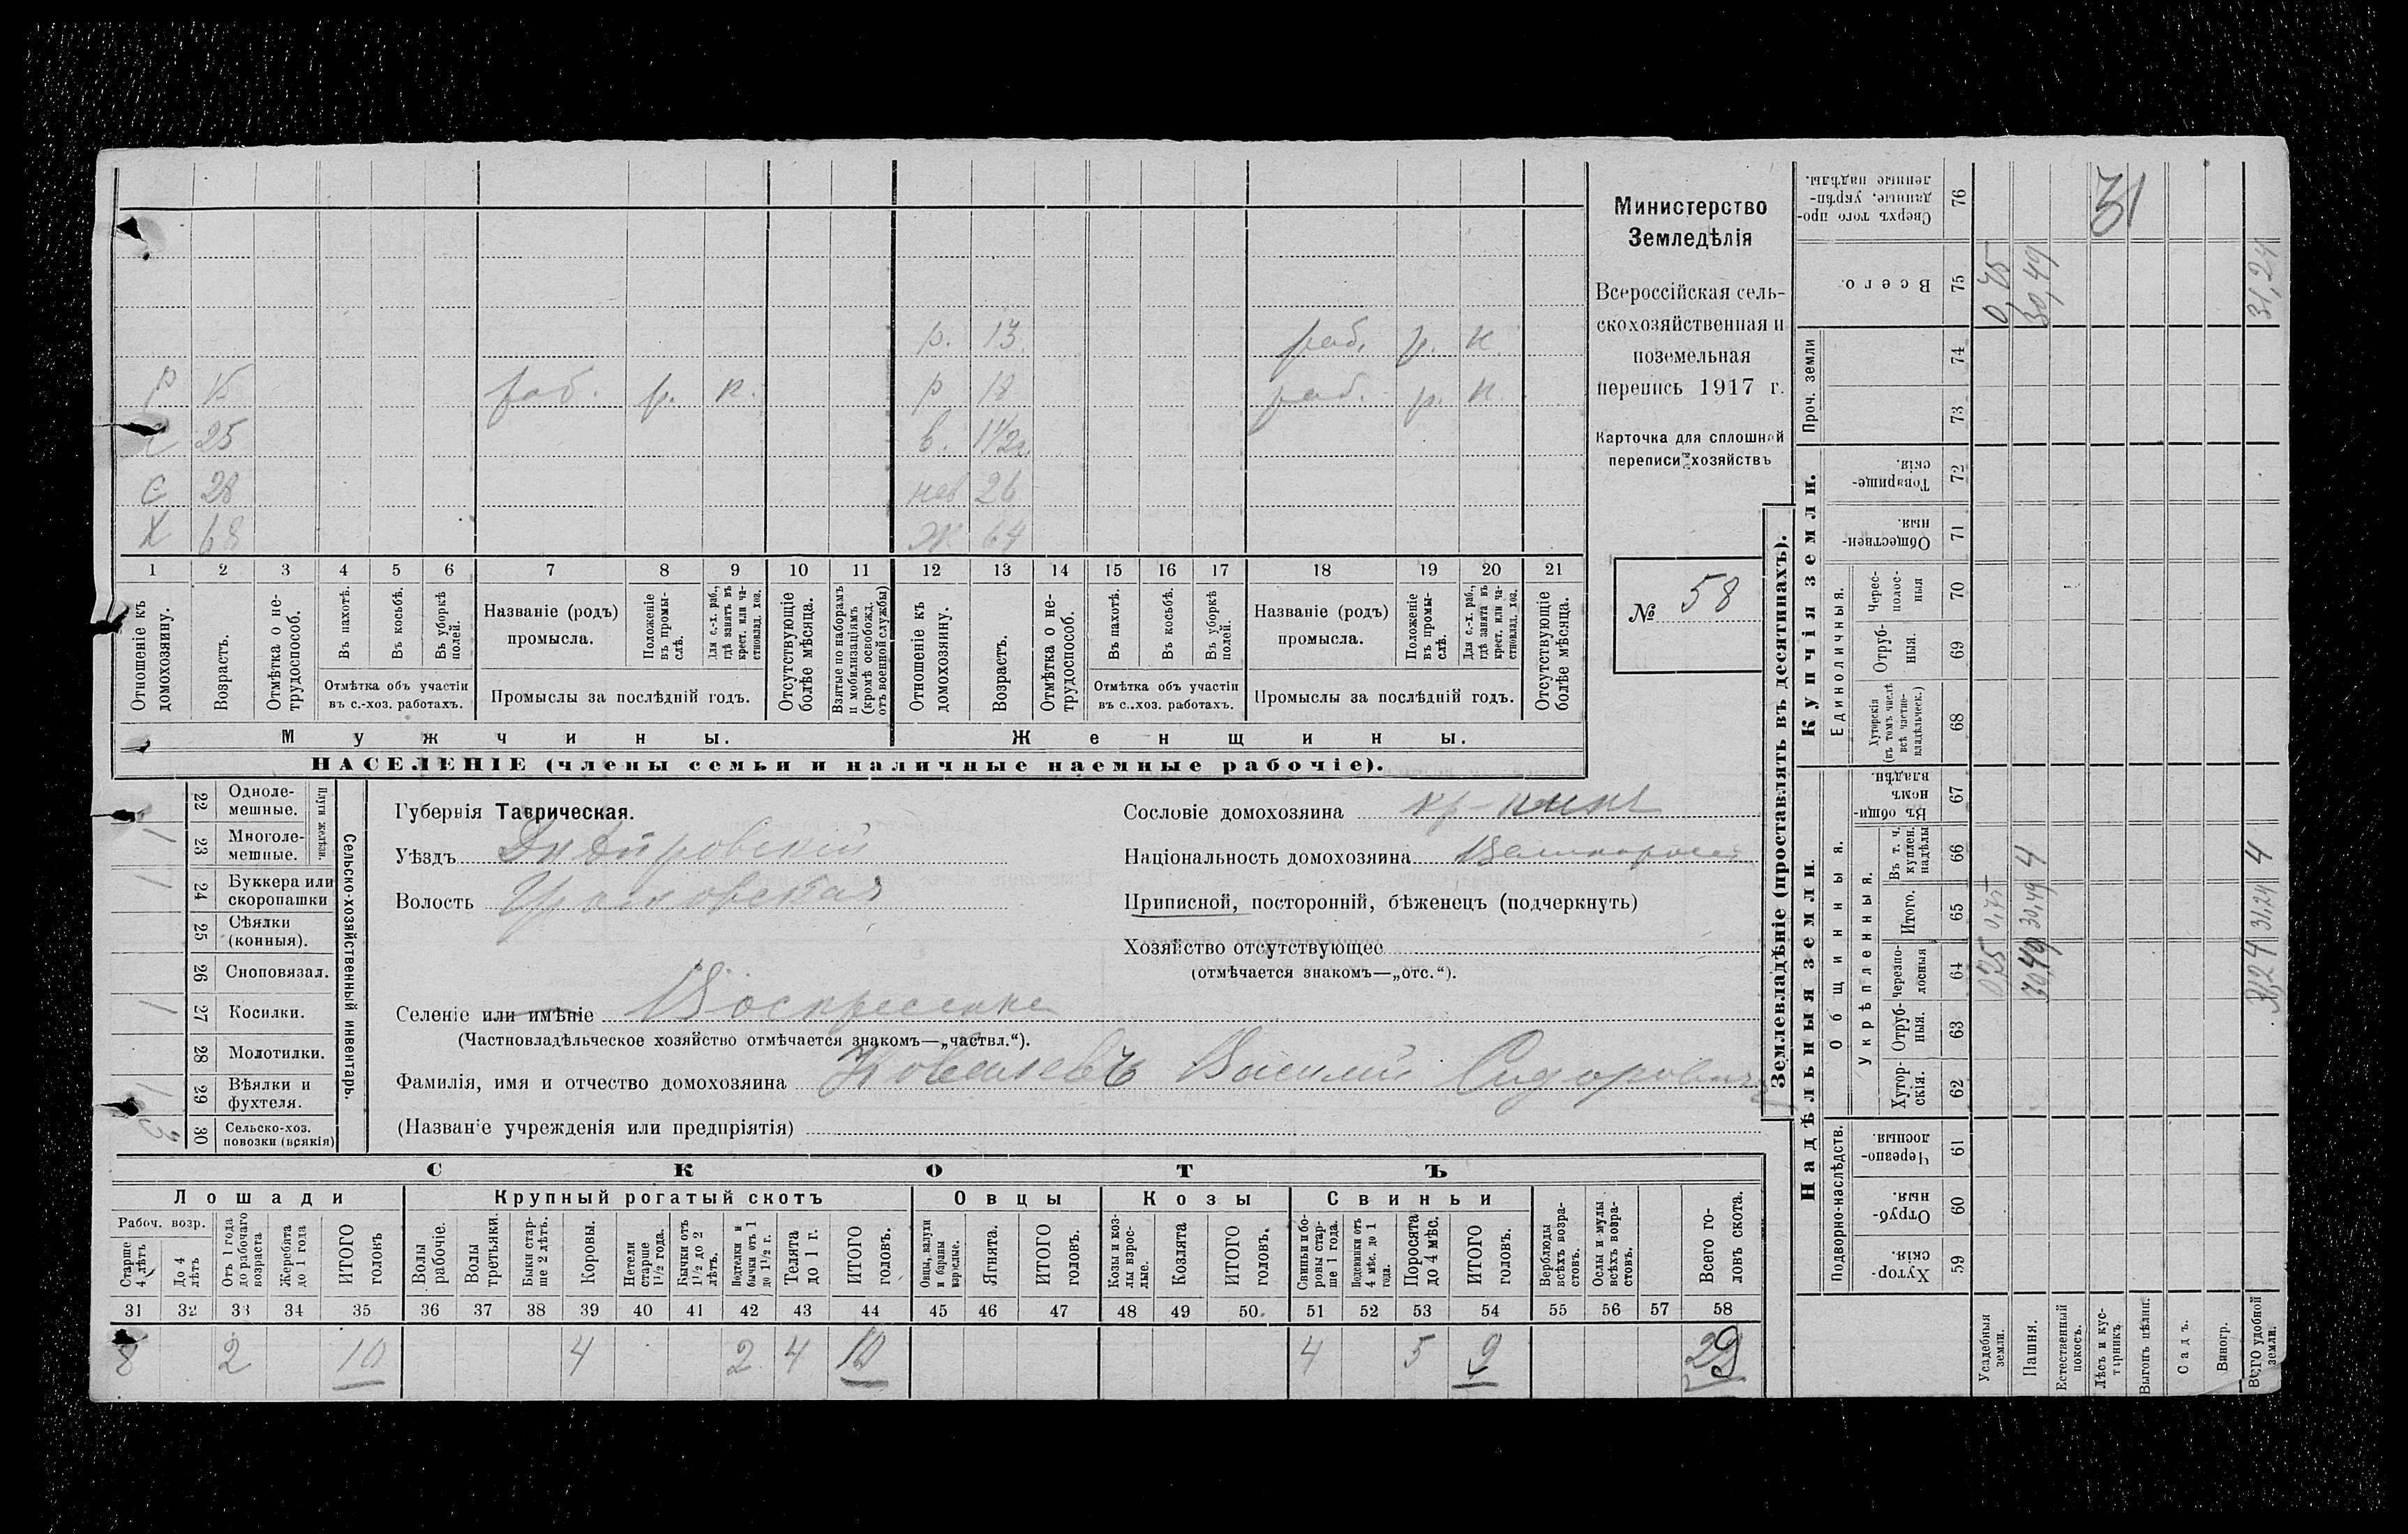 Министерство
Земледѣлія
Всероссійская сель-
скохозяйственная и
поземельная
перепись 1917 г.
Карточка для сплошной
переписи хозяйствъ
№ 58
р. 13 раб. р. к
р 15 раб. р. к. р 18 раб. р. к
с 25 в. 1 1/2 г.
с 28 нев 26
х 68 ж 64
1 2 3 4 5 6 7 8 9 10 11 12 13 14 15 16 17 18 19 20 21
Отношеніе къ домохозяину.
Возрастъ.
Отмѣтка о не-трудоспособ.
Въ пахотѣ.
Въ косьбѣ.
Въ уборкѣ полей.
Отмѣтка объ участіи
въ с.-хоз. работахъ.
Названіе (родъ)
промысла.
Положеніе въ промы-слѣ.
Для с.-х. раб., гдѣ занятъ въ крест. или ча-стновлад. хоз.
Промыслы за послѣдній годъ.
Отсутствующіе болѣе мѣсяца.
Взятые по наборамъ и мобилизаціямъ (кромѣ освобожд. отъ военной службы)
Отношеніе къ домохозяину.
Возрастъ.
Отмѣтка о не-трудоспособ.
Въ пахотѣ.
Въ косьбѣ.
Въ уборкѣ полей.
Отмѣтка объ участіи
въ с..хоз. работахъ.
Названіе (родъ)
промысла.
Положеніе въ промы-слѣ.
Для с.-х. раб., гдѣ занята въ крест. или ча-стновлад. хоз.
Промыслы за послѣдній годъ.
Отсутствующіе болѣе мѣсяца.
Мужчины. Женщины.
НАСЕЛЕНІЕ (члены семьи и наличные наемные рабочіе).
Сельско-хозяйственный инвентарь.
Плуги желѣзн.
22 Одноле-мешные.
1 23 Многоле-мешные.
1 24 Буккера или скоропашки
25 Сѣялки (конныя).
26 Сноповязал.
1 27 Косилки.
28 Молотилки.
1 29 Вѣялки и фухтеля.
3 30 Сельско-хоз. повозки (всякія)
Губернія Таврическая.
Уѣздъ Днѣпровскій
Волость
Селеніе или имѣніе Воскресенка
(Частновладѣльческое хозяйство отмѣчается знакомъ—„частвл.“).
Фамилія, имя и отчество домохозяина Ковалевъ Василий Сидоровичъ
(Названіе учрежденія или предпріятія)
Сословіе домохозяина кр-нинъ
Національность домохозяина Великороссъ
Приписной, посторонній, бѣженецъ (подчеркнуть)
Хозяйство отсутствующее
(отмѣчается знакомъ—„отс.“).
СКОТЪ
Лошади Крупный рогатый скотъ Овцы Козы Свиньи
Рабоч. возр.
Старше 4 лѣтъ
До 4 лѣтъ
Отъ 1 года до рабочаго возраста
Жеребята до 1 года
ИТОГО головъ
Волы рабочіе.
Волы третьяки.
Быки стар-ше 2 лѣтъ.
Коровы.
Нетели старше 1 1/2 года.
Бычки отъ 1 1/2 до 2 лѣтъ.
Подтелки и бычки отъ 1 до 1 1/2 г.
Телята до 1 г.
ИТОГО головъ.
Овцы, валухи и бараны взрослые.
Ягнята.
ИТОГО головъ.
Козы и коз-лы взрос-лые.
Козлята
ИТОГО головъ.
Свиньи и бо-ровы стар-ше 1 года.
Подсвинки отъ 4 мѣс. до 1 года.
Поросята до 4 мѣс.
ИТОГО головъ.
Верблюды всѣхъ возра-стовъ.
Ослы и мулы всѣхъ возра-стовъ.
Всего го-ловъ скота.
31 32 33 34 35 36 37 38 39 40 41 42 43 44 45 46 47 48 49 50. 51 52 53 54 55 56 57 58
8 2 10 4 2 4 10 4 5 9 29
Землевладѣніе (проставлять въ десятинахъ).
Надѣльныя земли. Купчія земли.
Подворно-наслѣдств.
Общинныя.
Укрѣпленныя.
Единоличныя.
Проч. земли
59 Хутор-скія.
60 Отруб-ныя.
61 Черезпо-лосныя.
62 Хутор-скія.
63 Отруб-ныя.
64 Черезпо-лосныя
65 Итого.
66 Въ т. ч. куплен. надѣлы
67 Въ общин-номъ владѣн.
68 Хуторскія (въ томъ числѣ всѣ частно-владѣльческ.)
69 Отруб-ныя.
70 Черес-полос-ныя
71 Обществен-ныя.
72 Товарище-скія.
73
74
75 Всего.
76 Сверхъ того про-данные, укрѣп-ленные надѣлы.
Усадебныя земли. 0,75 0,75 0,75
Пашня. 30,49 30,49 4 30,49
Естественный покосъ.
Лѣсъ и кус-тарникъ
Выгонъ цѣлин.
Садъ.
Виногр.
Всего удобной земли. 31,24 31,24 4 31,24
31